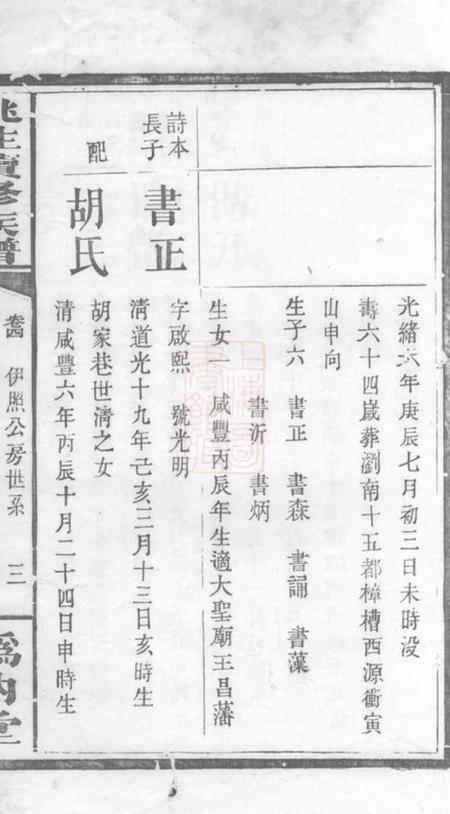 光緒六年庚辰七月初三日未時没
壽六十四嵗葬瀏南十五都樟槽西源衝寅
山申向
生子六　書正　書森　書誦　書藻
書沂　書炳
生女一　咸豐丙辰年生適大聖廟王昌藩
詩本
長子
書正
字啟熙　號光明
清道光十九年己亥三月十三日亥時生
配
胡氏
胡家巷世清之女
清咸豐六年丙辰十月二十四日申時生
續修族譜
卷四　伊照公房世系　三